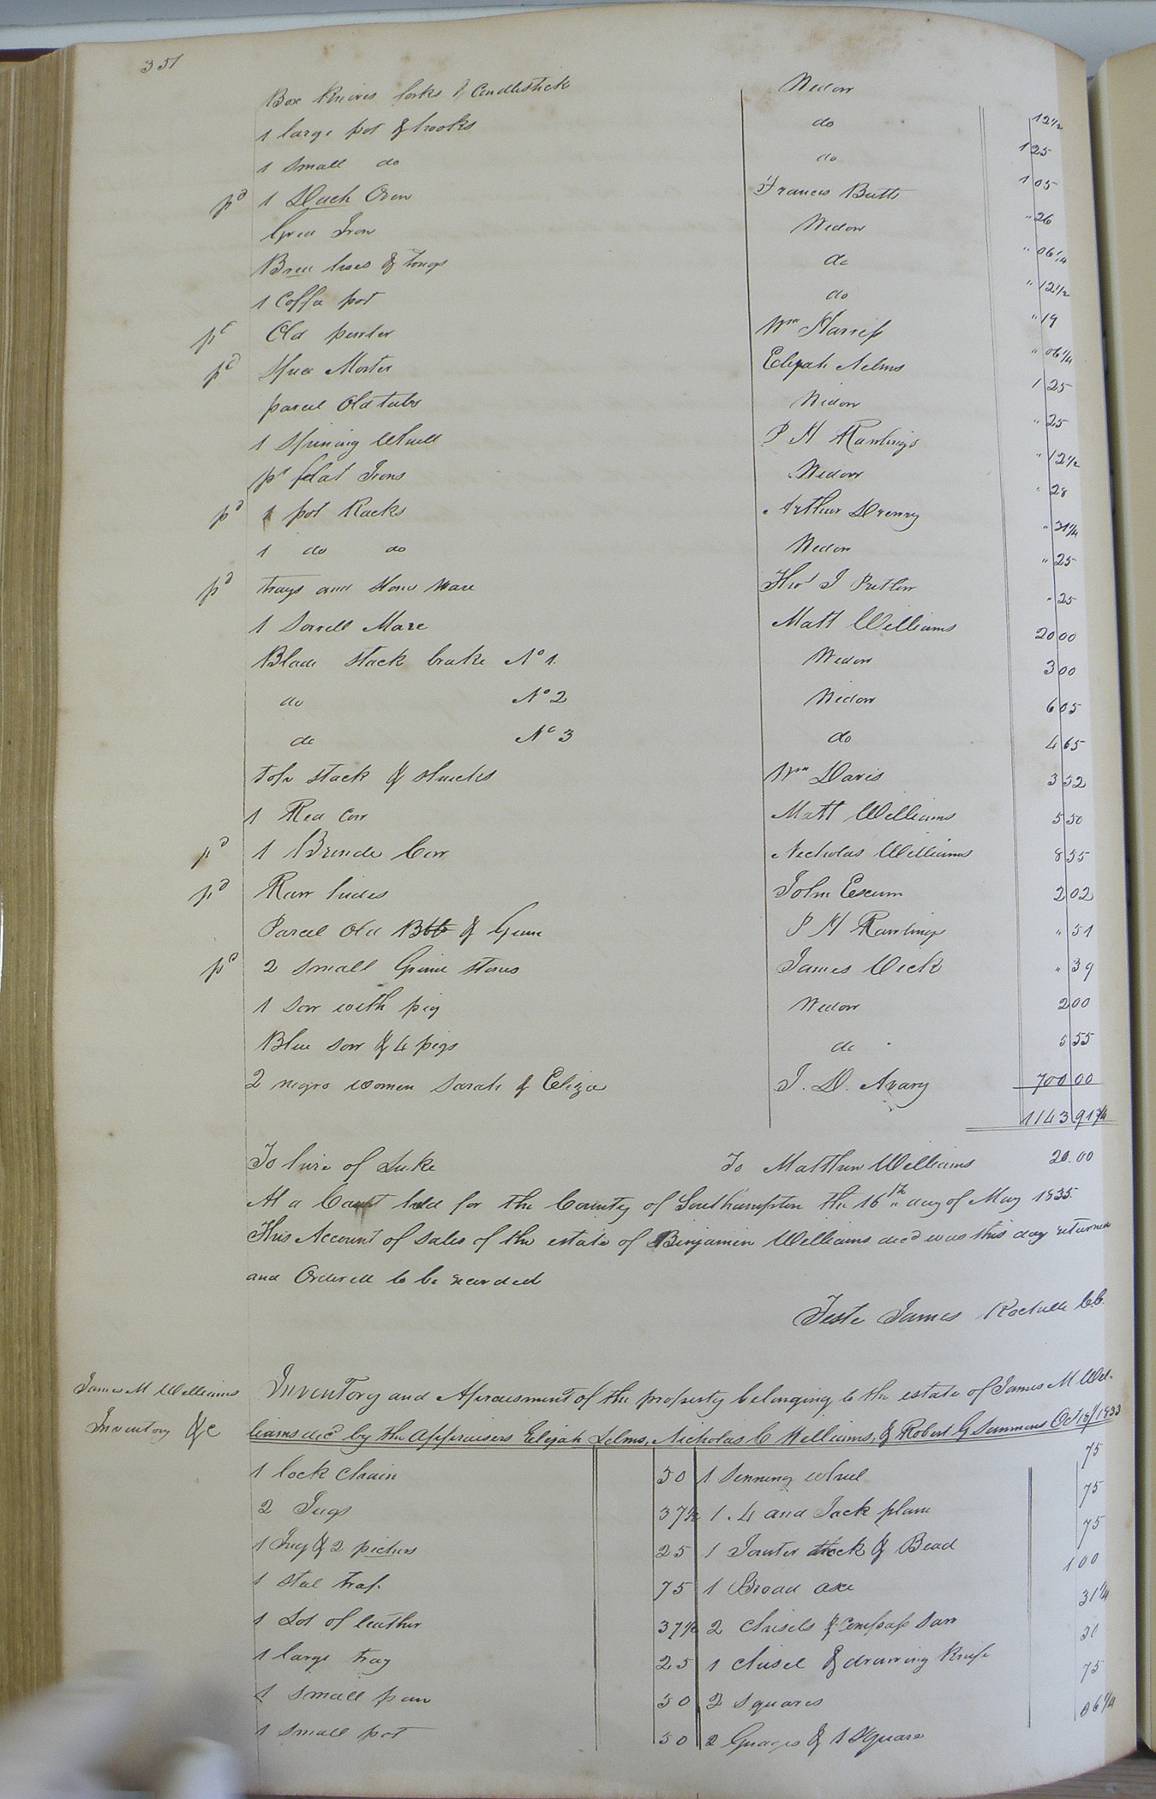 351
Box Knives forks & Candlestick Widow 12½
1 large pot & hooks do 1 25
1 Small do do 1 05
pd 1 Duch Oven Francis Butts " 26
Grid Iron Widow " 06¼
Bread hoes & tongs do " 12½
1 Coffe pot do " 19
pd Old pewter Wm Harriss " 06¼
pd Spice Morter Elijah Nelms 1 25
parcel Old tubs Widow " 25
1 Spining Wheel P H Rawlings " 12½
pr flat Irons Widow " 28
pd 1 pot Racks Arthur Drewry " 31¼
1 do do Widow " 25
pd trays and Stone Ware Thos J Pretlow " 25
1 Sorrell Mare Matt Williams 20 00
Blade stack brake No 1. Widow 3 00
do No 2 Widow 6 05
do No 3 do 4 65
top stack & shucks Wm Davis 3 32
1 Red Cow Matt Williams 5 50
pd 1 Brinde Cow Nicholas Williams 8 55
pd Raw hides John Excum 2 02
Parcel Old Bbls & Gum P H Rawlings " 51
pd 2 small Grind stones James Vick " 39
1 Sow with pig Widow 2 00
Blue sow & 4 pigs do 5 55
2 negro women Sarah & Eliza J. D. Avary 700 00
1143 91¾
To hire of Luke To Matthew Williams 20.00
At a Court held for the County of Southampton the 16th day of May 1835
This Account of Sales of the estate of Benjamin Williams decd was this day returned
and Ordered to be recorded
Teste James Rochelle CC.
James M Williams
Inventory &c
Inventory and Apraisment of the property belonging to the estate of James M. Wil-
liams decd by the Appraisers Elijah Nelms, Nicholas C Williams, & Robert G Simmons Oct 18th 1833
1 lock Chain 50 1 Spinning wheel 75
2 Jugs 37½ 1. 4 and Jack plane 75
1 Jug & 2 pichers 25 1 Jointer stock & Bead 75
1 steel trap. 75 1 Broad axe 1 00
1 Lot of leather 37½ 2 Chisels & Compass Saw 31¼
1 large tray 25 1 Chisel & drawing Knife 50
1 small pan 50 2 Squares 75
1 small pot 50 2 Guages & 1 Square 06¼